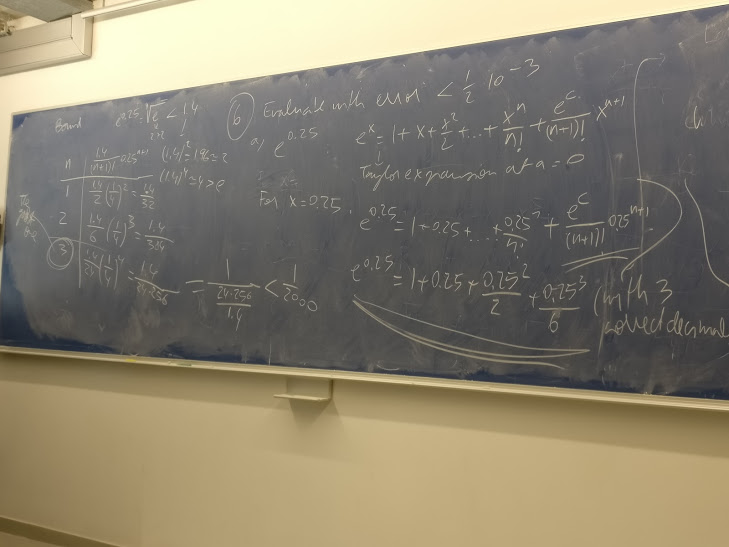 Bound e^0.25 = ∜e < 1.4
n | 1.4/(n+1)! 0.25^n+1
(1.4)^2 = 1.96 ≈ 2
(1.4)^4 ≈ 4 > e
1 | 1.4/2 (1/4)^2 = 1.4/32
2 | 1.4/6 (1/4)^3 = 1.4/384
3 | 1.4/24 (1/4)^4 = 1.4/24·256 = 1/(24·256/1.4) < 1/2000
6 Evaluate with error < 1/2 10^-3
a) e^0.25
e^x = 1 + x + x^2/2 + ... + x^n/n! + e^c/(n+1)! x^n+1
Taylor expansion at a = 0
For x = 0.25.
e^0.25 = 1 + 0.25 + ... + 0.25^n/n! + e^c/(n+1)! 0.25^n+1
e^0.25 = 1 + 0.25 + 0.25^2/2 + 0.25^3/6 (with 3
decimal